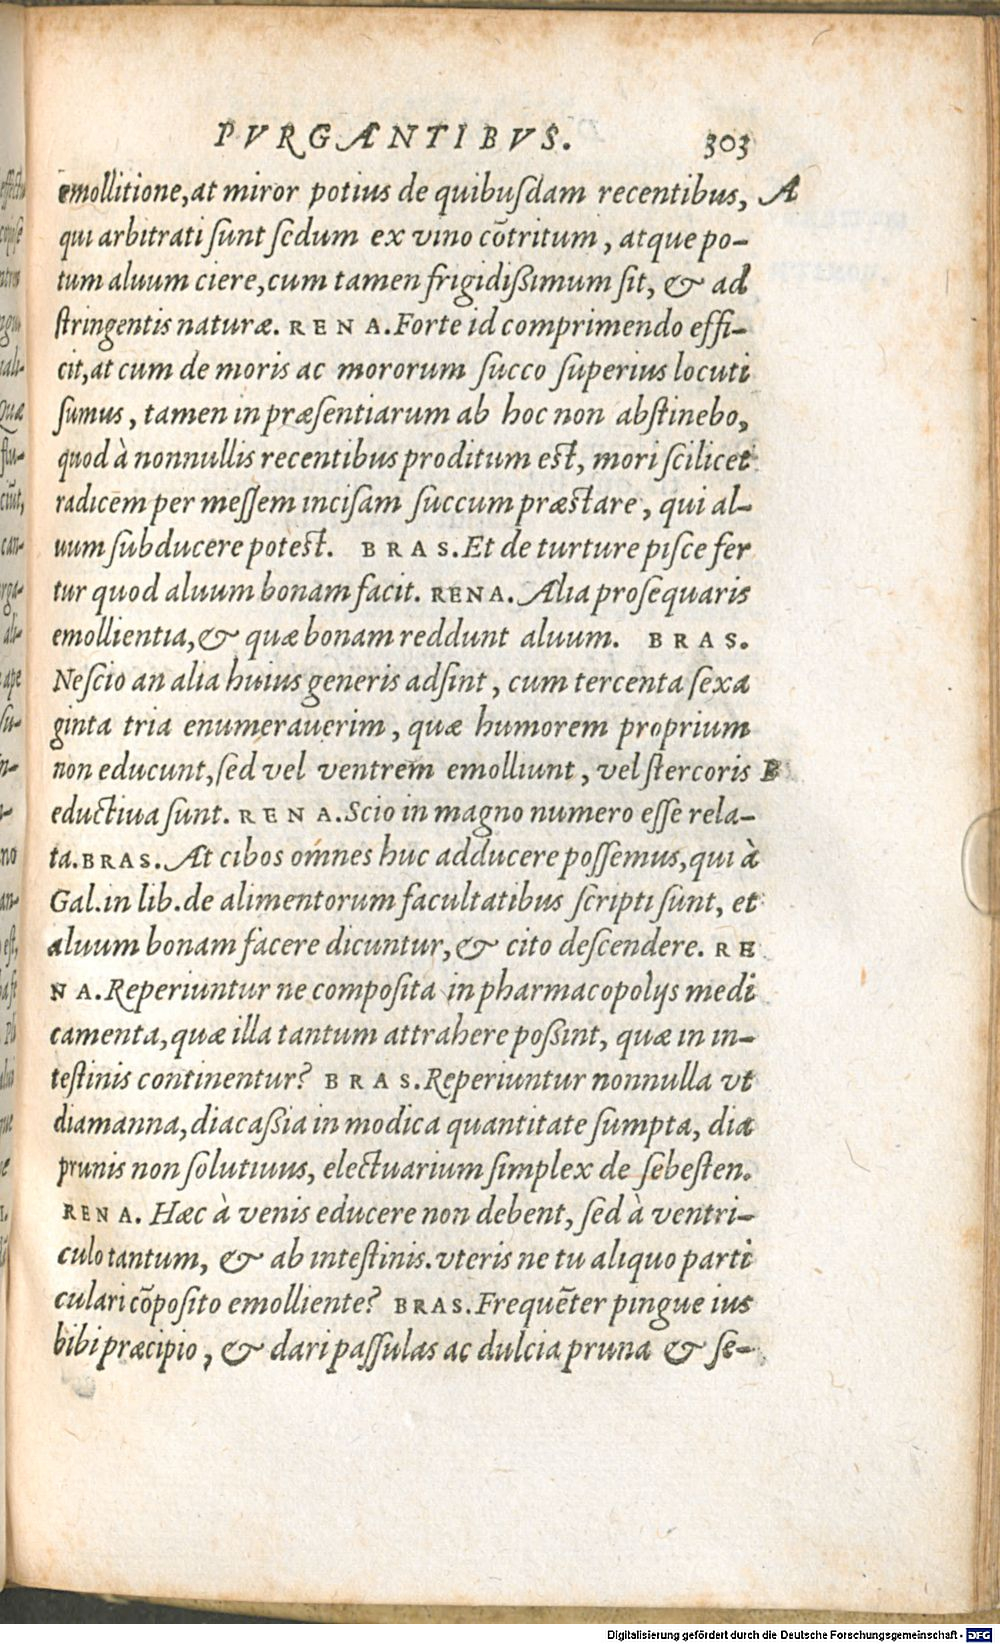 PVRGANTIBVS. 303
emollitione, at miror potius de quibusdam recentibus, A
qui arbitrati sunt sedum ex vino cõtritum, atque po-
tum aluum ciere, cum tamen frigidißimum sit, & ad
stringentis naturæ. RENA. Forte id comprimendo effi-
cit, at cum de moris ac mororum succo superius locuti
sumus, tamen in præsentiarum ab hoc non abstinebo,
quod à nonnullis recentibus proditum est, mori scilicet
radicem per messem incisam succum præstare, qui al-
uum subducere potest. BRAS. Et de turture pisce fer
tur quod aluum bonam facit. RENA. Alia prosequaris
emollientia, & quæ bonam reddunt aluum. BRAS.
Nescio an alia huius generis adsint, cum tercenta sexa
ginta tria enumerauerim, quæ humorem proprium
non educunt, sed vel ventrem emolliunt, vel stercoris B
eductiua sunt. RENA. Scio in magno numero esse rela-
ta. BRAS. At cibos omnes huc adducere possemus, qui à
Gal. in lib. de alimentorum facultatibus scripti sunt, et
aluum bonam facere dicuntur, & cito descendere. RE
NA. Reperiuntur ne composita in pharmacopolijs medi
camenta, quæ illa tantum attrahere poßint, quæ in in-
testinis continentur? BRAS. Reperiuntur nonnulla vt
diamanna, diacaßia in modica quantitate sumpta, dia
prunis non solutiuus, electuarium simplex de sebesten.
RENA. Hæc à venis educere non debent, sed à ventri-
culo tantum, & ab intestinis. vteris ne tu aliquo parti
culari cõposito emolliente? BRAS. Frequẽter pingue ius
bibi præcipio, & dari passulas ac dulcia pruna & se-
Digitalisierung gefördert durch die Deutsche Forschungsgemeinschaft - DFG